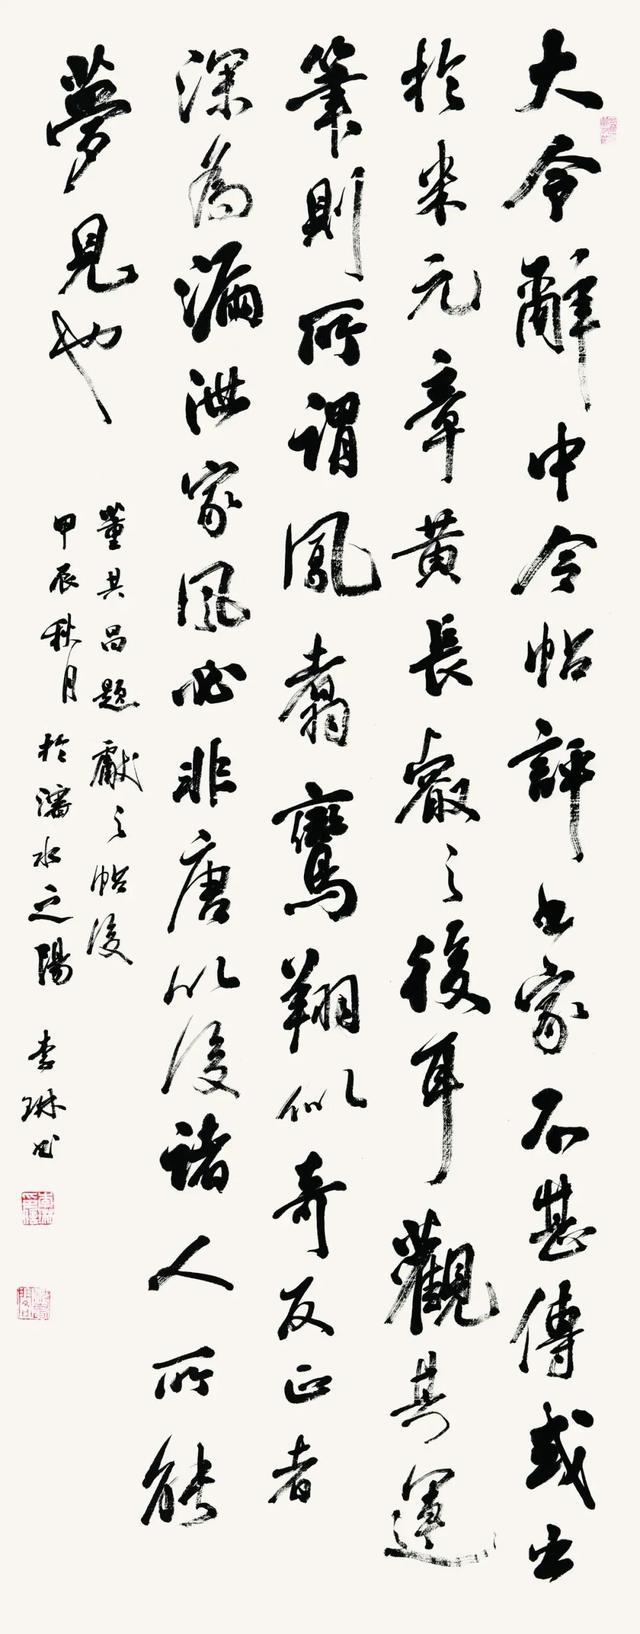 大令辭中令帖評書家不甚傳或出
於米元章黄長睿之後耳觀其運
筆則所謂鳳翥鸞翔似奇反正者
深為漏泄家風必非唐以後諸人所能
夢見也
董其昌題獻之帖後
甲辰秋月於潘水之陽 李琳书